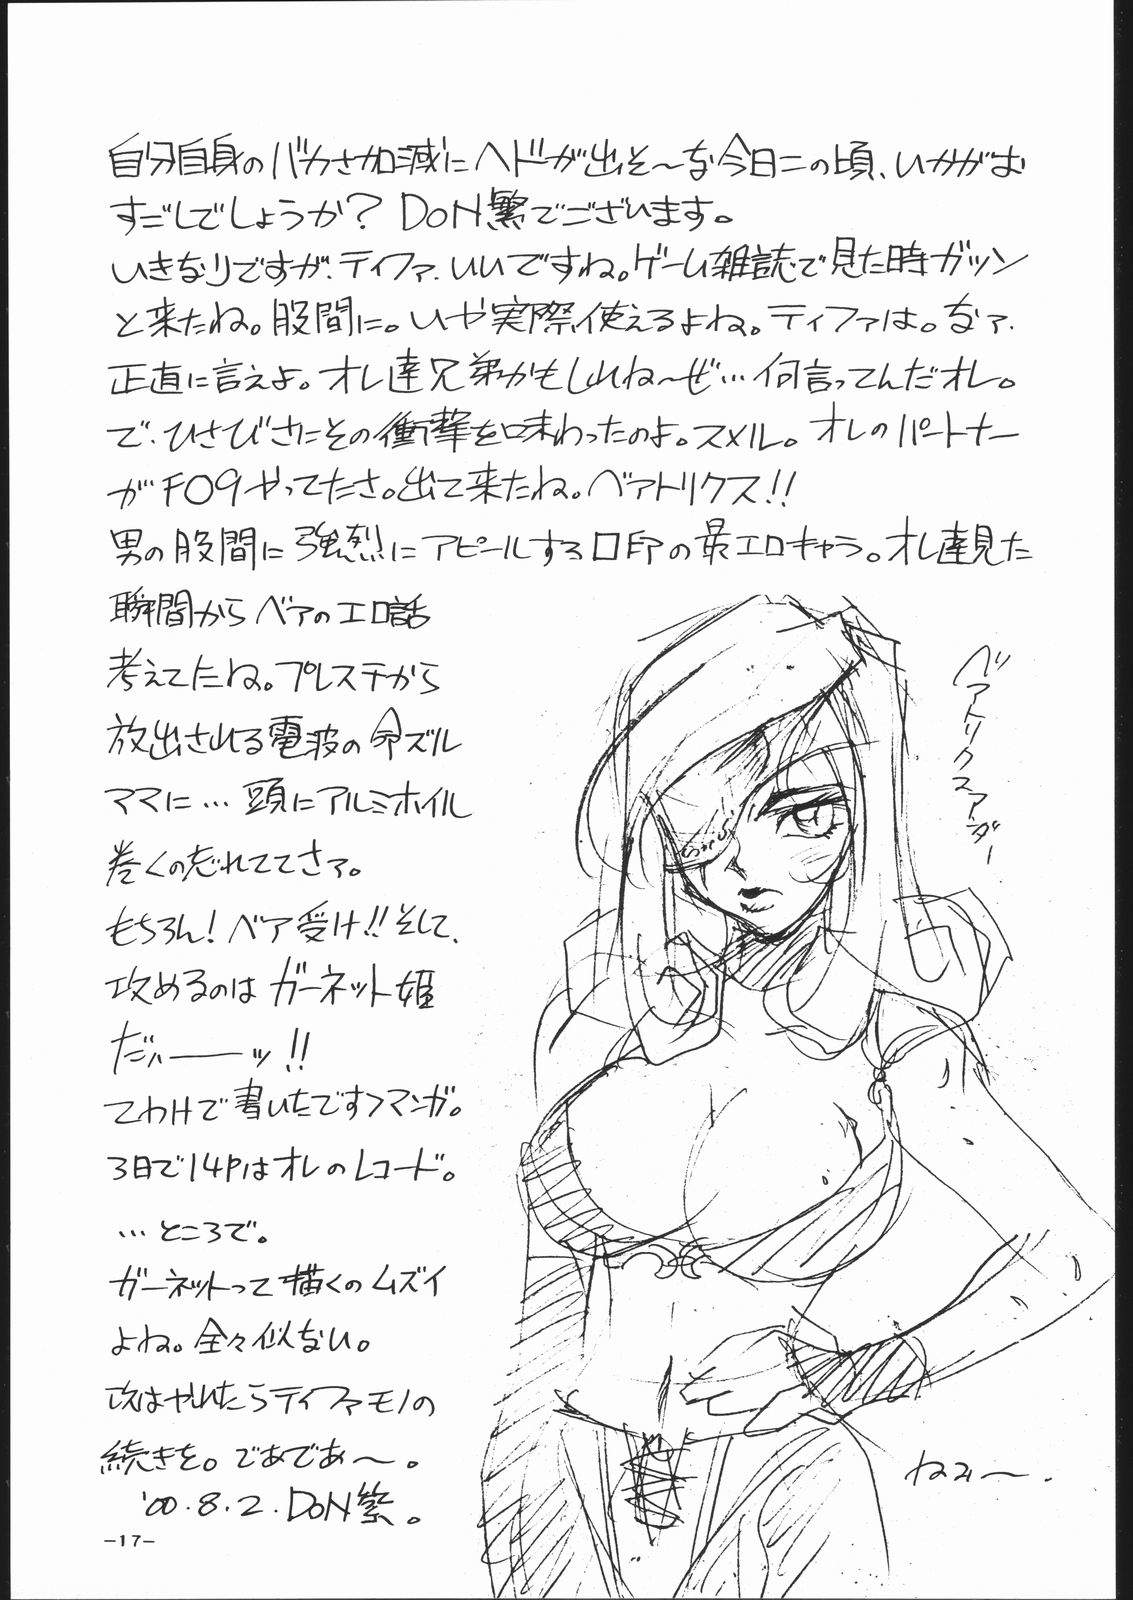 自分自身のバカさ加減にヘドが出そ〜な今日二の頃、いかがお
すごしでしょうか？ DoN繁でございます。
いきなりですが、ティファ、いいですね。ゲーム雑誌で見た時ガツン
と来たね。股間に。いや実際、使えるよね。ティファは。なァ、
正直に言えよ。オレ達兄弟かもしれね〜ぜ…何言ってんだオレ。
で、ひさびさにその衝撃を味わったのよ。スメル。オレのパートナー
がFO9やってたさ。出て来たね。ベアトリクス!!
男の股間に強烈にアピールする口印の最エロキャラ。オレ達見た
瞬間からベアのエロ話
考えてたね。プレステから
放出される電波の命ズル
ママに…頭にアルミホイル
巻くの忘れててさァ。
もちろん！ベア受け!!そして、
攻めるのはガーネット姫
だィーーッ!!
てわけで書いたですフマンガ。
3日で14Pはオレのレコード。
…ところで。
ガーネットって描くのムズイ
よね。全々似ない。
次はやれたらティファモノの
続きを。であであ〜。
'00.8.2.DoN繁。
ベアトリクスアンダー
ねみ〜.
-17-